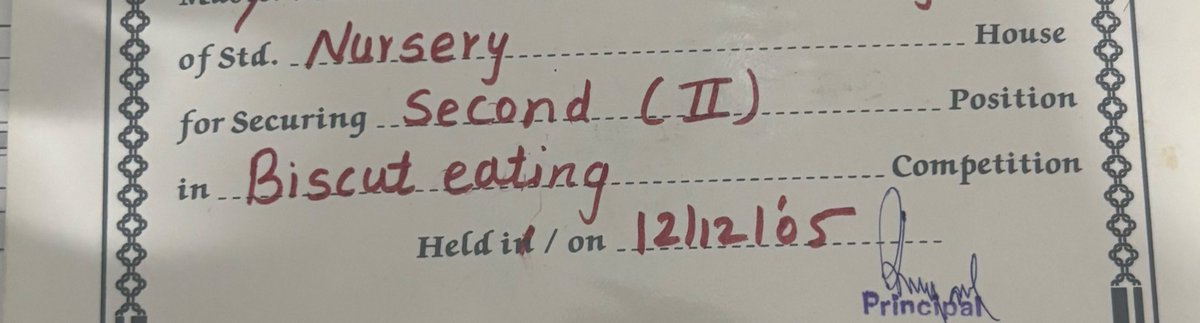 of Std. Nursery House
for Securing Second (II) Position
in Biscut eating Competition
Held in / on 12/12/'05
Principal